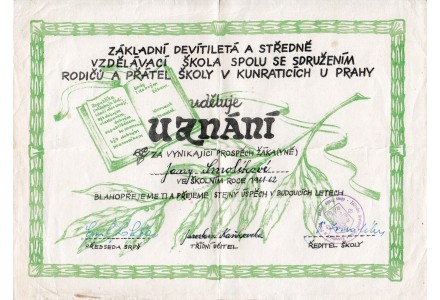 ZÁKLADNÍ DEVÍTILETÁ A STŘEDNĚ
VZDĚLÁVACÍ ŠKOLA SPOLU SE SDRUŽENÍM
RODIČŮ A PŘÁTEL ŠKOLY V KUNRATICÍCH U PRAHY
uděluje
UZNÁNÍ
ZA VYNIKAJÍCÍ PROSPĚCH ŽÁKA(YNĚ)
VE ŠKOLNÍM ROCE 1961-62
BLAHOPŘEJEME TI A PŘEJEME STEJNÝ ÚSPĚCH V BUDOUCÍCH LETECH
PŘEDSEDA SRPŠ
TŘÍDNÍ UČITEL
ŘEDITEL ŠKOLY